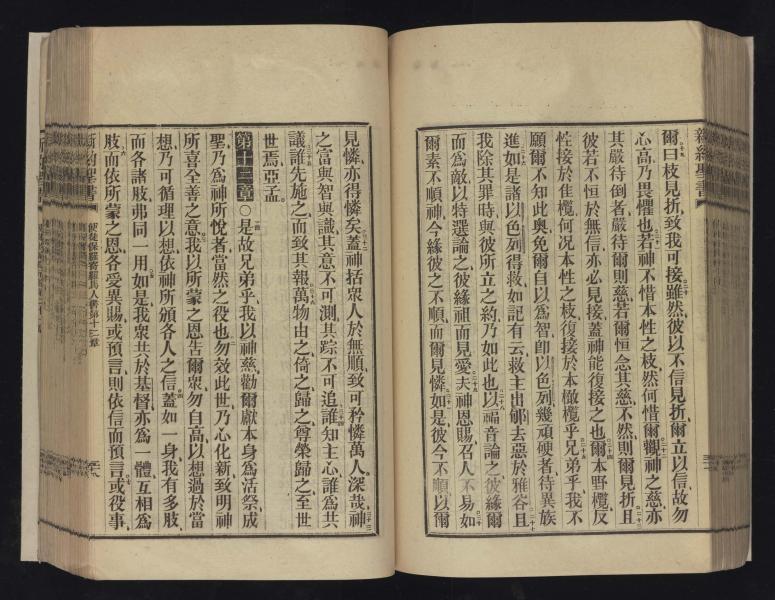 新約聖書
爾曰枝見折致我可接雖然彼以不信見折爾立以信故勿
心高乃畏懼也若神不惜本性之枝然何惜爾觀神之慈亦
其嚴待倒者嚴待爾則慈若爾恒念其慈不然則爾見折且
彼若不恒於無信亦必見接蓋神能復接之也爾本野欖反
性接於佳欖何況本性之枝復接於本橄欖乎兄弟乎我不
願爾不知此奧免爾自以為智卽以色列幾頑硬者待異族
進如是諸以色列得救如記有云救主出郇去惡於雅谷且
我除其罪時與彼所立之約乃如此也以福音論之彼緣爾
而為敵以特選論之彼緣祖而見愛夫神恩賜召人不易如
爾素不順神今緣彼之不順而爾見憐如是彼今不順以爾
見憐亦得憐矣蓋神括眾人於無順致可矜憐萬人深哉神
之富與智與識其意不可測其踪不可追誰知主心誰為共
議誰先施之而致其報萬物由之倚之歸之尊榮歸之至世
世焉亞孟
第十二章○是故兄弟乎我以神慈勸爾獻本身為活祭成
聖乃為神所悅者當然之役也勿效此世乃心化新致明神
所喜全善之意我以所蒙之恩吿爾眾勿自高以想過於當
想乃可循理以想依神所頒各人之信蓋如一身我有多肢
而各諸肢弗同一用如是我眾共於基督亦為一體互相為
肢而依所蒙之恩各受異賜或預言則依信而預言或役事
新約聖書 使徒保羅寄羅馬人書第十二章